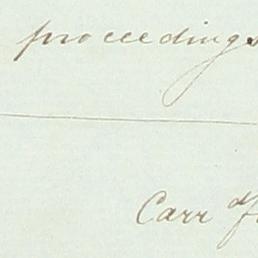 proceedings
Carr